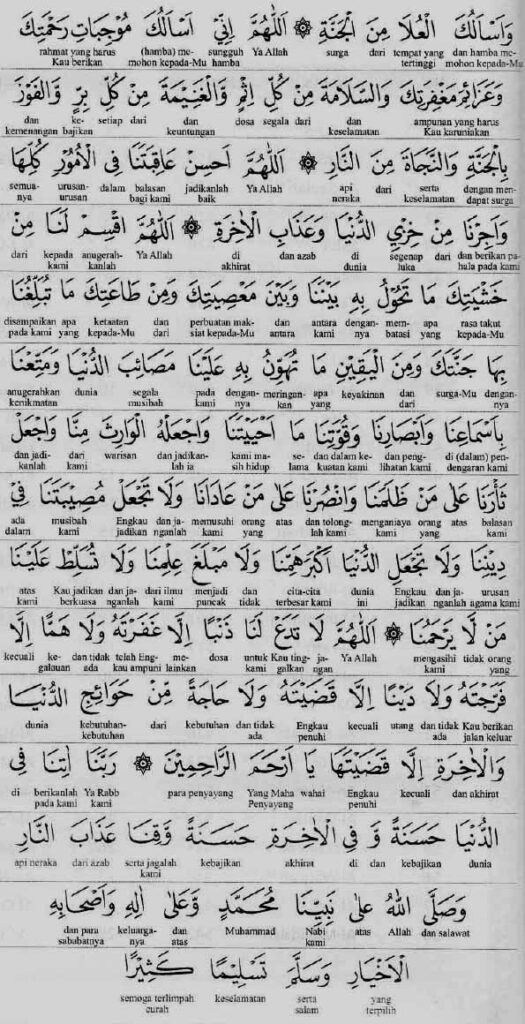 وَاَسْأَلُكَ الْعُلَا مِنَ الْجَنَّةِ ۞ اَللّٰهُمَّ اِنِّيْ اَسْأَلُكَ مُوْجِبَاتِ رَحْمَتِكَ
rahmat yang harus (hamba) me- sungguh Ya Allah surga dari tempat yang dan hamba me-
Kau berikan mohon kepada-Mu hamba tertinggi mohon kepada-Mu
وَعَزَائِمَ مَغْفِرَتِكَ وَالسَّلَامَةَ مِنْ كُلِّ اِثْمٍ وَّالْغَنِيْمَةَ مِنْ كُلِّ بِرٍّ وَّالْفَوْزَ
dan ke- setiap dari dan dosa segala dari dan ampunan yang harus
kemenangan bajikan keuntungan keselamatan Kau karuniakan
بِالْجَنَّةِ وَالنَّجَاةَ مِنَ النَّارِ ۞ اَللّٰهُمَّ اَحْسِنْ عَاقِبَتَنَا فِى الْاُمُوْرِ كُلِّهَا
semua- urusan- dalam balasan jadikanlah Ya Allah api dari serta dengan men-
nya urusan bagi kami baik neraka keselamatan dapat surga
وَاَجِرْنَا مِنْ خِزْيِ الدُّنْيَا وَعَذَابِ الْاٰخِرَةِ ۞ اَللّٰهُمَّ اقْسِمْ لَنَا مِنْ
dari kepada anugerah- Ya Allah di dan azab di segenap dari dan berikan pa-
kami kanlah akhirat dunia luka hala pada kami
خَشْيَتِكَ مَا تَحُوْلُ بِهِ بَيْنَنَا وَبَيْنَ مَعْصِيَتِكَ وَمِنْ طَاعَتِكَ مَا تُبَلِّغُنَا
disampaikan apa ketaatan dan perbuatan mak- dan antara dengan- mem- apa rasa takut
pada kami yang kepada-Mu dari siat kepada-Mu antara kami nya batasi yang kepada-Mu
بِهَا جَنَّتَكَ وَمِنَ الْيَقِيْنِ مَا تُهَوِّنُ بِهِ عَلَيْنَا مَصَائِبَ الدُّنْيَا وَمَتِّعْنَا
anugerahkan dunia segala pada dengan- meringan- apa keyakinan dan surga-Mu dengan-
kenikmatan musibah kami nya kan yang dari nya
بِاَسْمَاعِنَا وَاَبْصَارِنَا وَقُوَّتِنَا مَا اَحْيَيْتَنَا وَاجْعَلْهُ الْوَارِثَ مِنَّا وَاجْعَلْ
dan jadi- dari warisan dan jadikan- kami ma- se- dan dalam ke- dan peng- di (dalam) pen-
kanlah kami lah ia sih hidup lama kuatan kami lihatan kami dengaran kami
ثَأْرَنَا عَلٰى مَنْ ظَلَمَنَا وَانْصُرْنَا عَلٰى مَنْ عَادَانَا وَلَا تَجْعَلْ مُصِيْبَتَنَا فِيْ
ada musibah Engkau dan ja- memusuhi orang atas dan tolong- menganiaya orang atas balasan
dalam kami jadikan nganlah kami yang lah kami kami yang kami
دِيْنِنَا وَلَا تَجْعَلِ الدُّنْيَا اَكْبَرَ هَمِّنَا وَلَا مَبْلَغَ عِلْمِنَا وَلَا تُسَلِّطْ عَلَيْنَا
atas Kau jadikan dan ja- dari ilmu menjadi dan cita-cita dunia Engkau dan ja- urusan
kami berkuasa nganlah kami puncak tidak terbesar kami ini jadikan nganlah agama kami
مَنْ لَا يَرْحَمُنَا ۞ اَللّٰهُمَّ لَا تَدَعْ لَنَا ذَنْبًا اِلَّا غَفَرْتَهُ وَلَا هَمًّا اِلَّا
kecuali ke- dan tidak telah Eng- me- dosa untuk Kau ting- ja- Ya Allah mengasihi tidak orang
galauan ada kau ampuni lainkan kami galkan ngan kami yang
فَرَّجْتَهُ وَلَا دَيْنًا اِلَّا قَضَيْتَهُ وَلَا حَاجَةً مِّنْ حَوَائِجِ الدُّنْيَا
dunia kebutuhan- dari kebutuhan dan tidak Engkau kecuali utang dan tidak Kau berikan
kebutuhan ada penuhi ada jalan keluar
وَالْاٰخِرَةِ اِلَّا قَضَيْتَهَا يَا اَرْحَمَ الرَّاحِمِيْنَ ۞ رَبَّنَا اٰتِنَا فِى
di berikanlah Ya Rabb para penyayang Yang Maha wahai Engkau kecuali dan akhirat
pada kami kami Penyayang penuhi
الدُّنْيَا حَسَنَةً وَّ فِي الْاٰخِرَةِ حَسَنَةً وَّقِنَا عَذَابَ النَّارِ
api neraka dari azab serta jagalah kebajikan akhirat di dan kebajikan dunia
kami
وَصَلَّى اللّٰهُ عَلٰى نَبِيِّنَا مُحَمَّدٍ وَّعَلٰى اٰلِهِ وَاَصْحَابِهِ
dan para keluarga- dan Muhammad Nabi atas Allah dan salawat
sahabatnya nya atas kami
الْاَخْيَارِ وَسَلَّمَ تَسْلِيْمًا كَثِيْرًا
semoga terlimpah keselamatan serta yang
curah salam terpilih